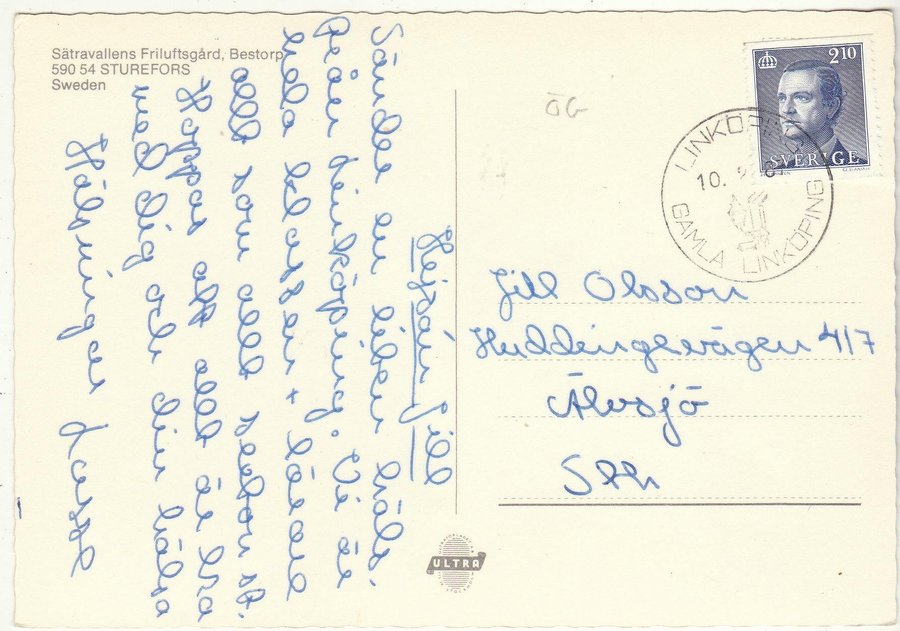 Sätravallens Friluftsgård, Bestorp
590 54 STUREFORS
Sweden
Hejsan Jill
Sänder en liten häls.
från Linköping. Vi är
hela klassen + lärare
allt som allt sexton st.
Hoppas att allt är bra
med dig och din hälsa
Hälsningar
ÖG
2.10
SVERIGE
LINKÖPING
10.
GAMLA LINKÖPING
Jill Olsson
Huddingevägen 417
Älvsjö
Sthlm
ULTRA